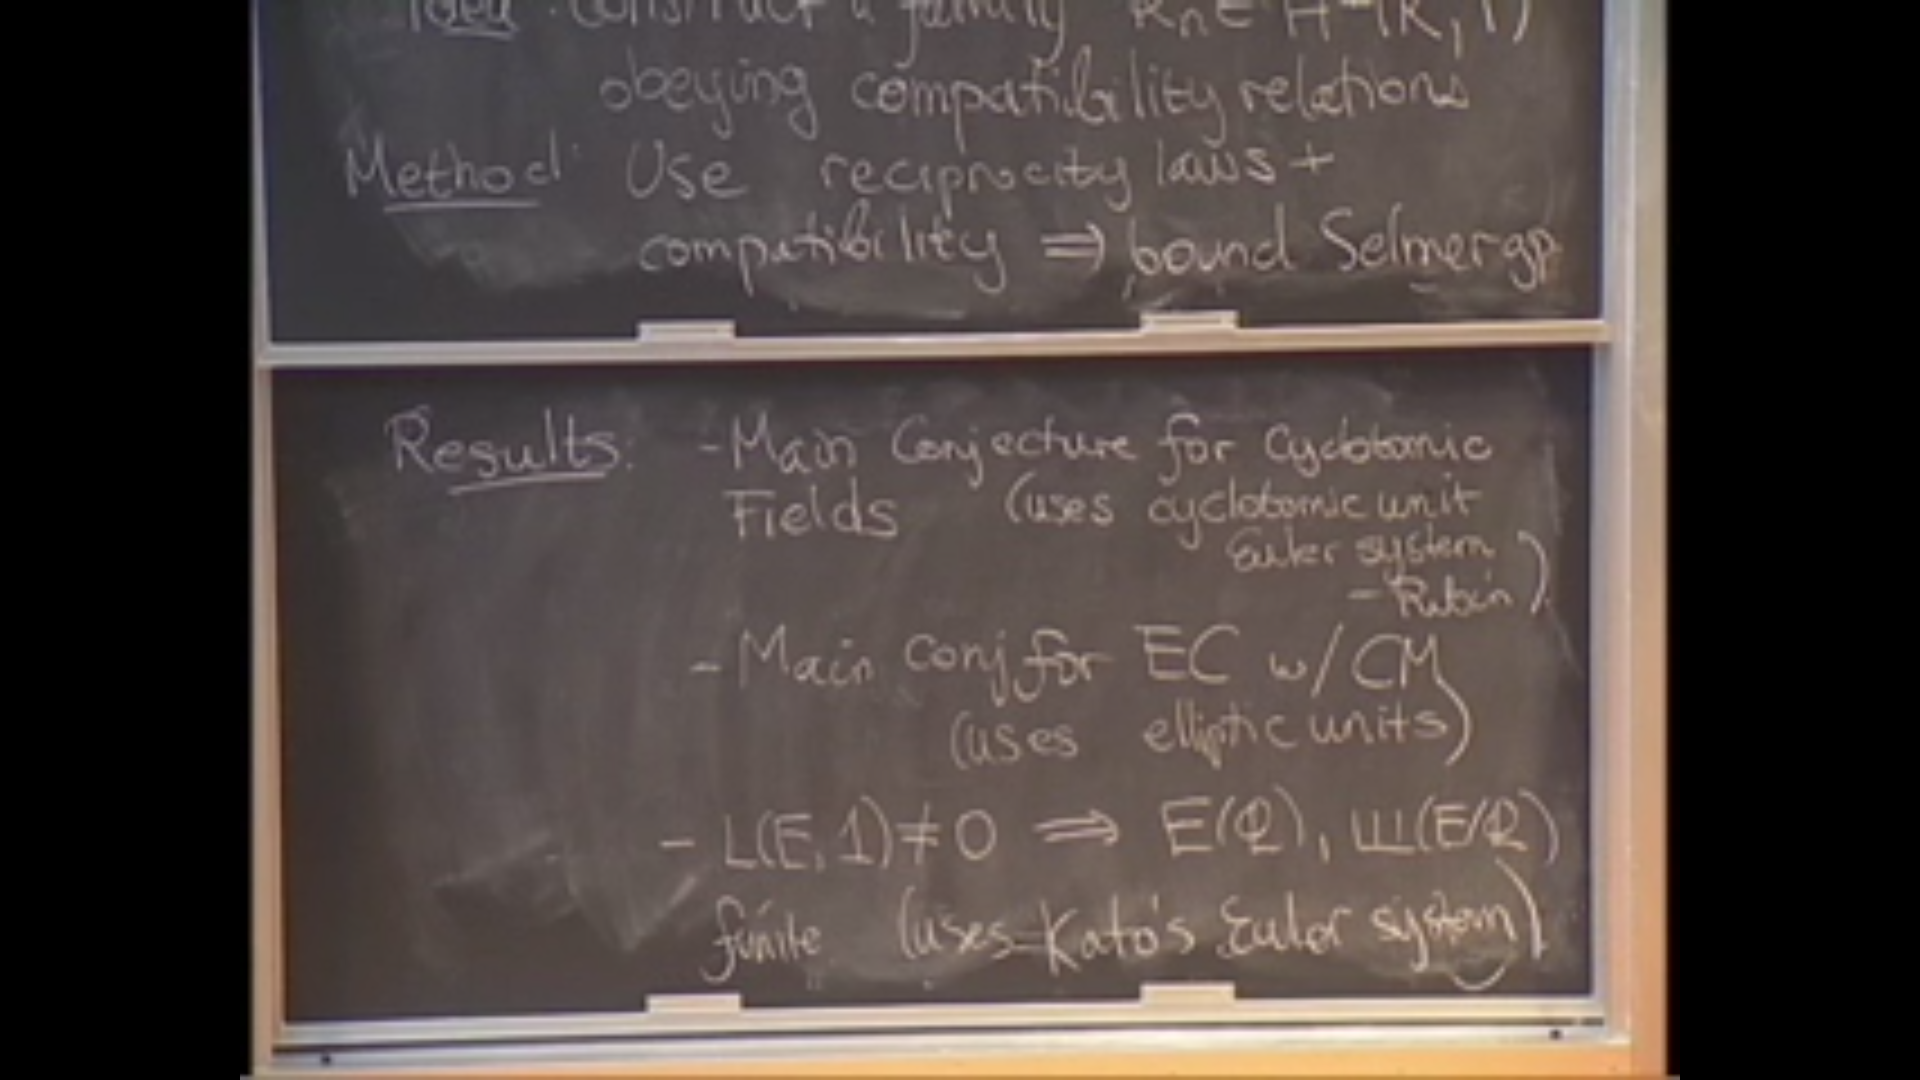 Idea: Construct a family κn ∈ H¹(K, T)
obeying compatibility relations
Method: Use reciprocity laws +
compatibility ⇒ bound Selmer gp
Results: - Main Conjecture for Cyclotomic
Fields (uses cyclotomic unit
Euler system
- Rubin)
- Main conj for EC w/ CM
(uses elliptic units)
- L(E, 1) ≠ 0 ⇒ E(ℚ), Ш(E/ℚ)
finite (uses Kato's Euler system)